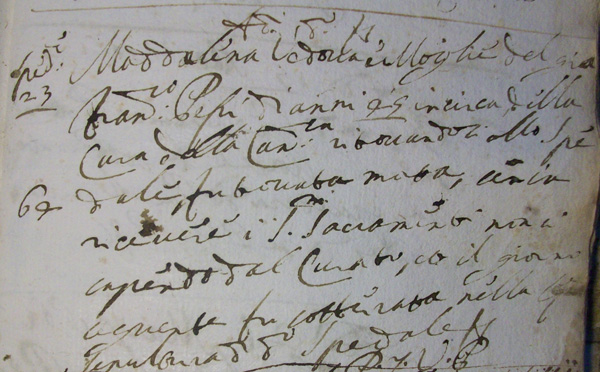 Adi dº 11
Sped.e Maddalena Vedova e Moglie del già
23 Fran.co Pesi di anni 45 in circa della
Cura della Can.ca ritrovandosi allo Spe
64 dale, fu trovata morta, senza
ricevere i S.mi Sacramenti non si
sapendo dal Curato, et il giorno
seguente fu sotterrata nella
sepultura di dº Spedale